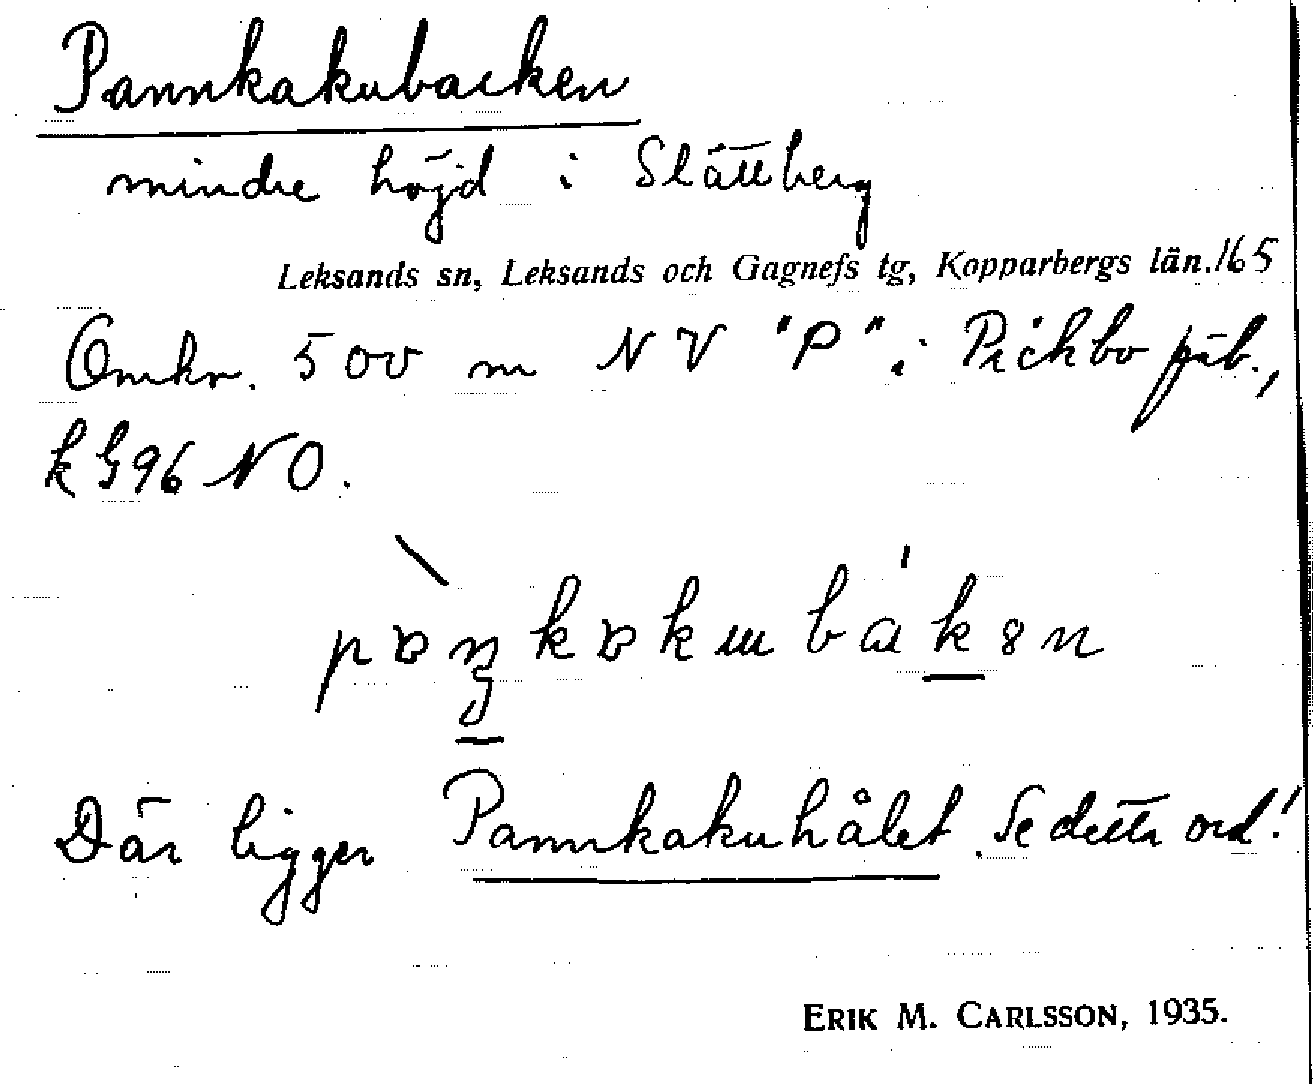 Pannkakubacken
mindre höjd i Slättberg
Leksands sn, Leksands och Gagnefs tg, Kopparbergs län. 165
Omkr. 500 m NV "P" i Pickbo fäb.,
k G96 NO.
Där ligger Pannkakuhålet. Se detta ord!
ERIK M. CARLSSON, 1935.